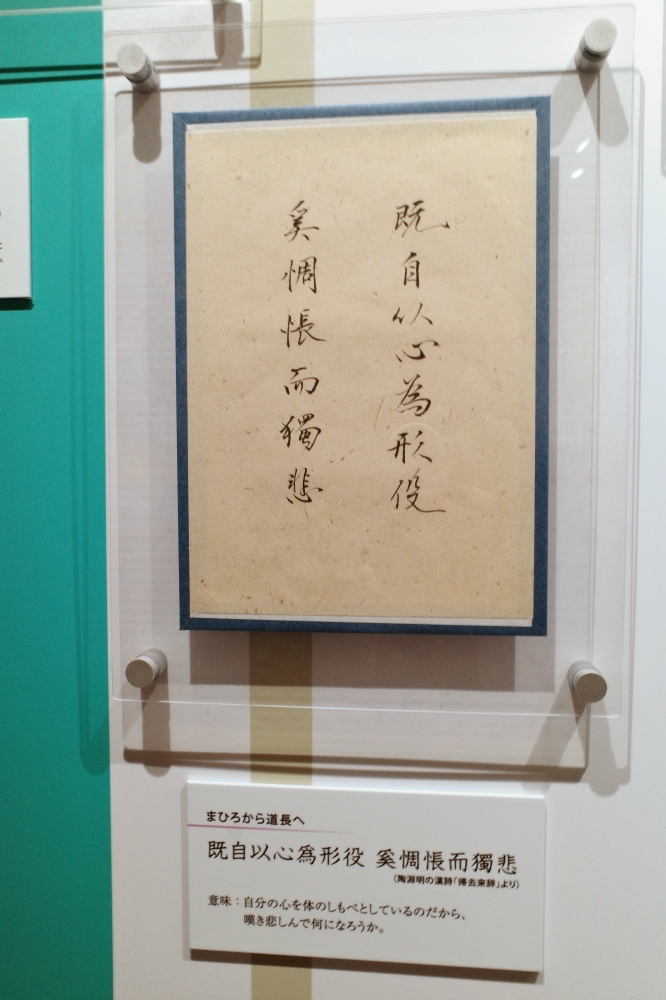 既自以心為形役
奚惆悵而獨悲
まひろから道長へ
既自以心爲形役 奚惆悵而獨悲
(陶淵明の漢詩「帰去来辞」より)
意味：自分の心を体のしもべとしているのだから、
嘆き悲しんで何になろうか。